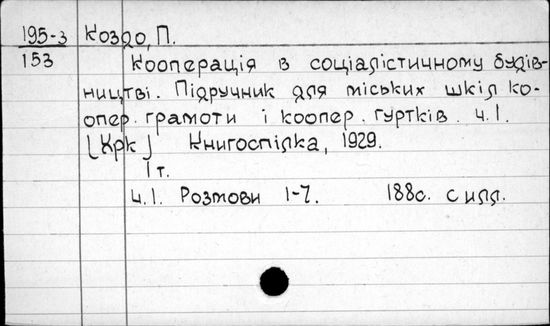 195-3 Козло, П.
153
Кооперація в соціалістичному будів-
ництві. Підручник для міських шкіл ко-
опер. грамоти і коопер. гуртків. ч.1.
[Хрк] Книгоспілка, 1929.
1 т.
ч.1. Розмови 1-7. 188с. с илл.